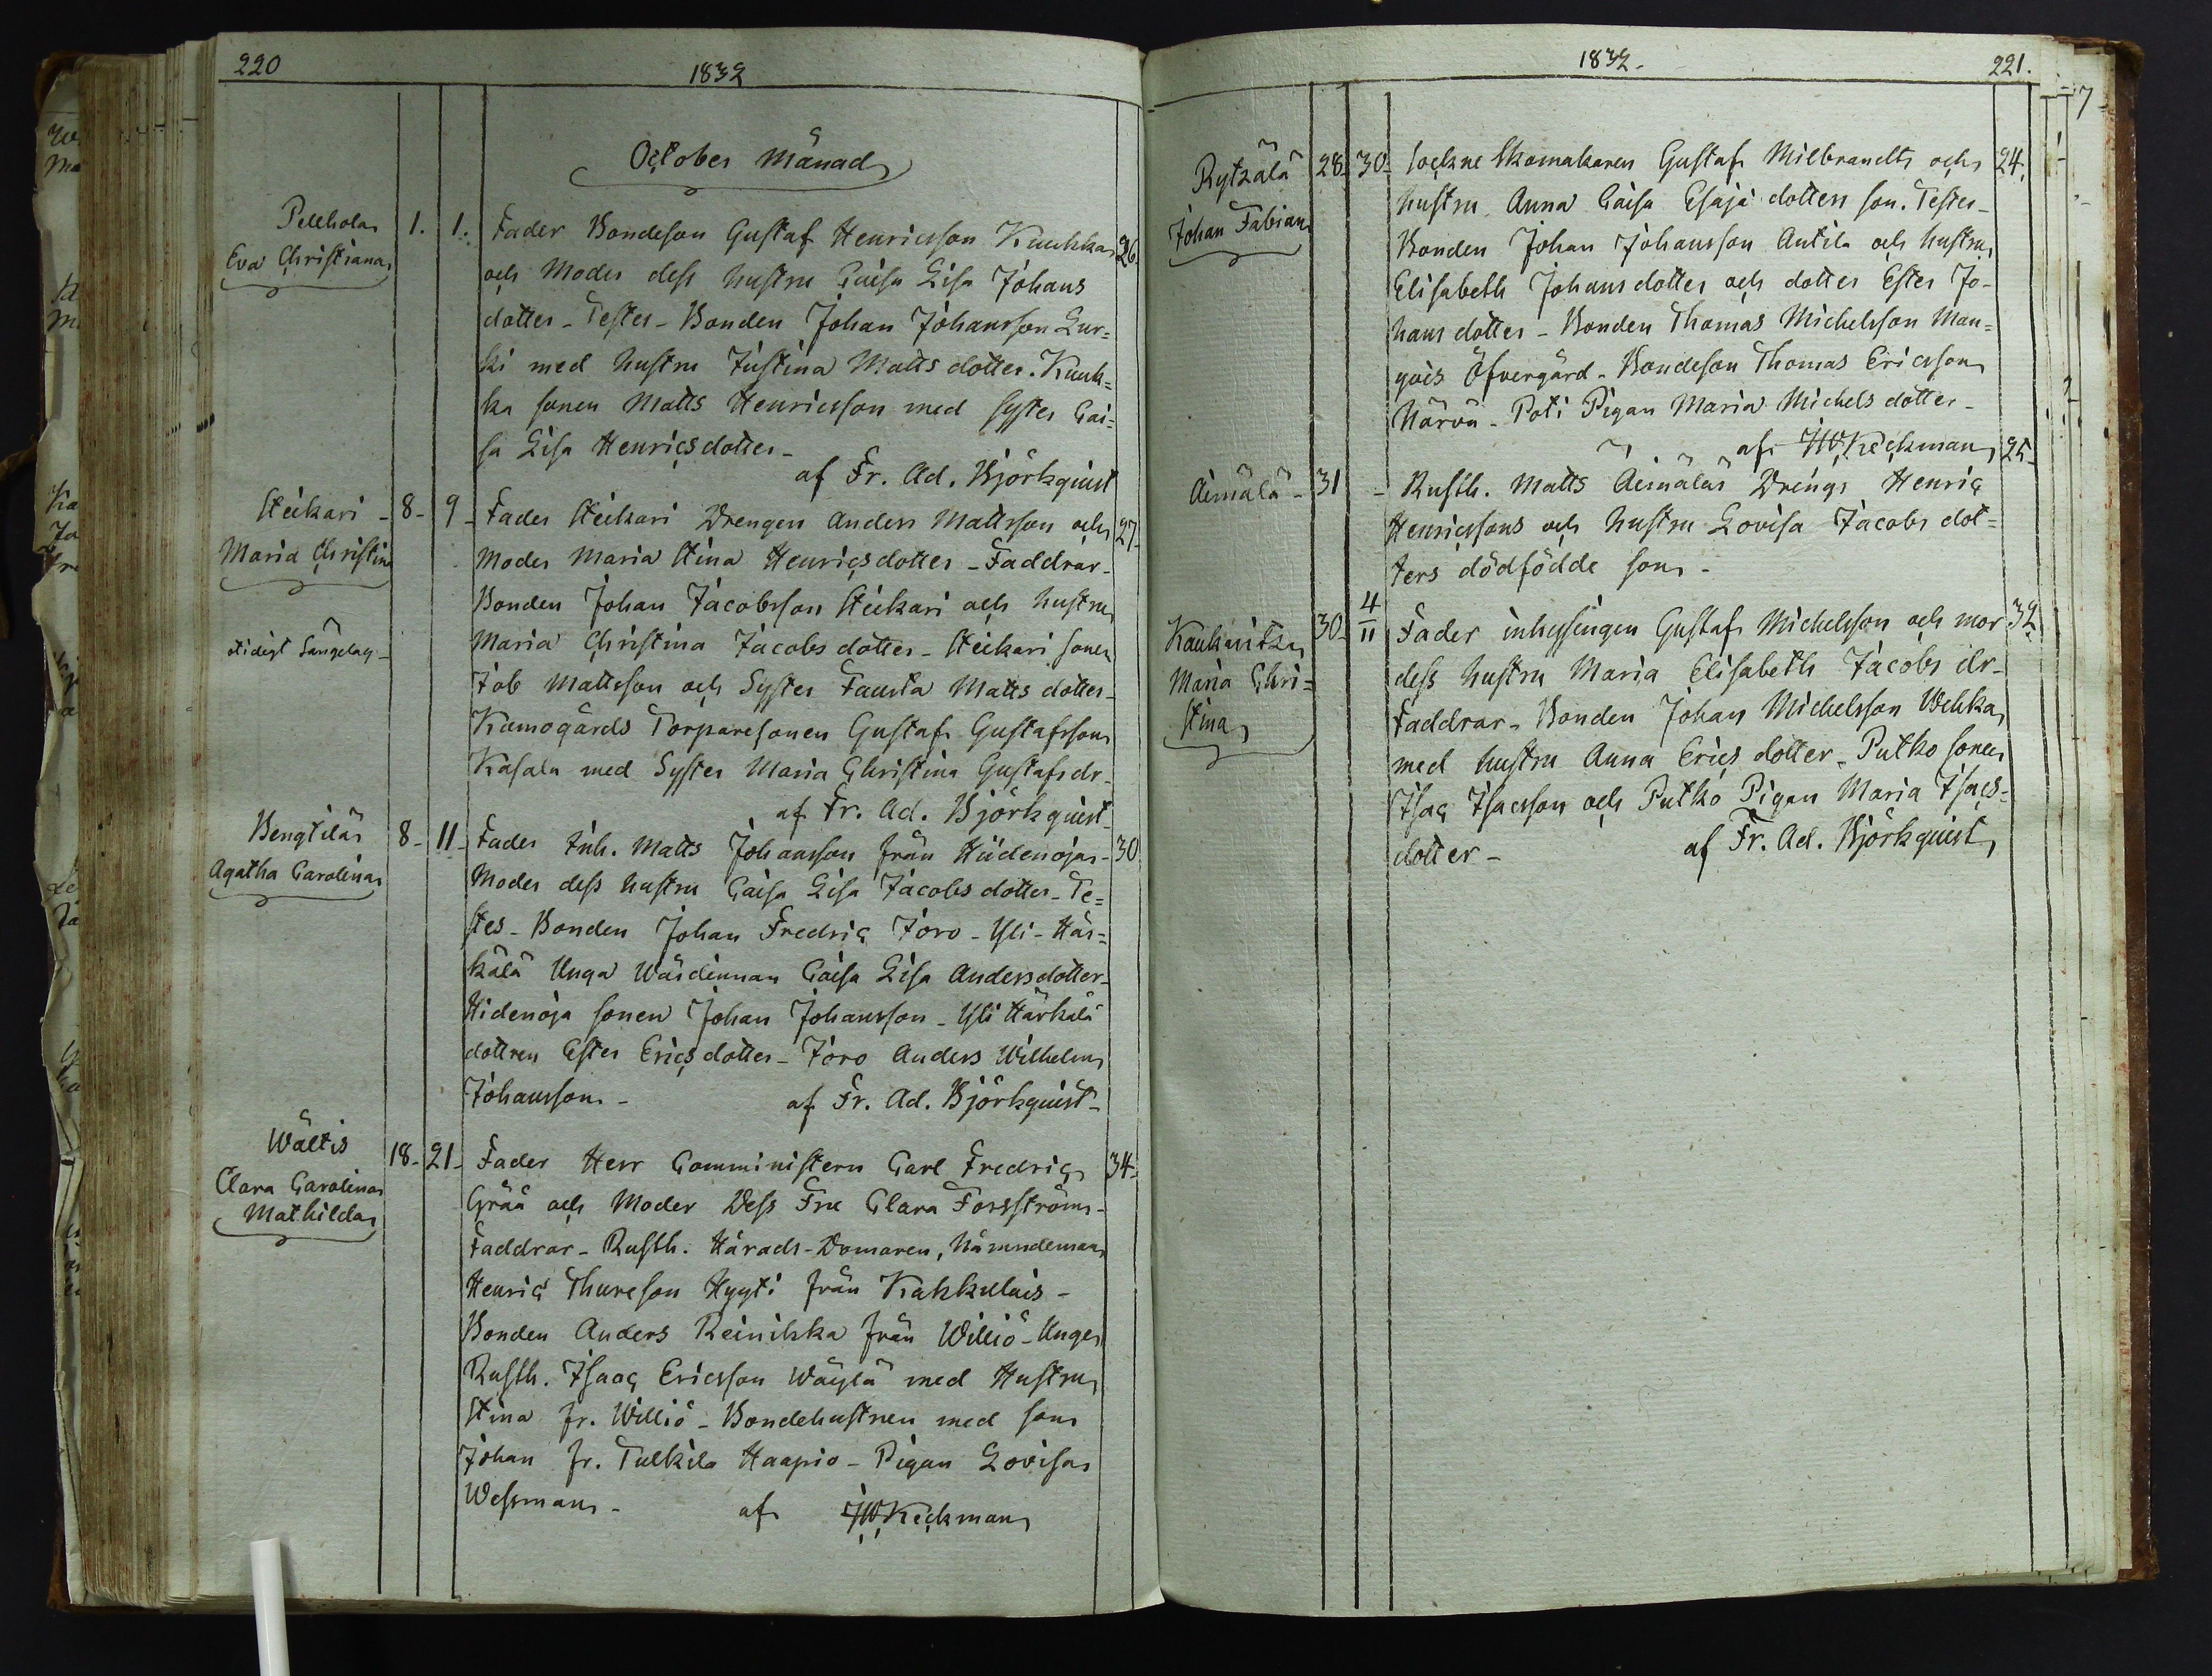 220
1832
October Månad
Pellhola
Eva Christiana
1.
1.
Fader Bondeson Gustaf Henricsson Kuukka
26
och Moder dess hustru Caisa Lisa Johans
dotter - Testes - Bonden Johan Johansson Lur=
ki med hustru Justina Matts dotter. Kuuk=
ka sonen Matts Henricsson med syster Cai=
sa Lisa Henricsdotter -
af Fr. Ad. Björkquist
Stickari -
Maria Christin
otidigt Sängelag -
8 -
9 -
Fader Stickari Drengen Anders Mattsson och
27 -
Moder Maria Stina Henricsdotter - Faddrar -
Bonden Johan Jacobsson Stickari och hustru
Maria Christina Jacobs dotter - Stickari sonen
Job Mattsson och Syster Fausta Matts dotter -
Kumogårds Torparesonen Gustaf Gustafsson
Kasala med Syster Maria Christina Gustafs dr -
af Fr. Ad. Björkquist -
Bengtilä
Agatha Carolina
8 -
11 -
Fader Inh. Matts Johansson från Hiidenoja -
30
Moder dess hustru Caisa Lisa Jacobs dotter - Te=
stes - Bonden Johan Fredric Joro - Yli - Här=
kälä Unga Wärdinnan Caisa Lisa Andersdotter -
Hidenoja sonen Johan Johansson - Yli Härkälä
dottren Ester Erics dotter - Joro Anders Wilhelm
Johansson -
af Fr. Ad. Björkquist -
Wältis
Clara Carolina
Mathilda
18 -
21 -
Fader Herr Comministern Carl Fredric
34 -
Gråå och Moder Dess Fru Clara Forsström -
Faddrar - Rusth. Härads-Domaren, Nämndeman
Henric Thureson Hyyti från Kakkulais -
Bonden Anders Reinikka från Williö - Unge
Rusth. Isaac Ericsson Wäylä med Hustru
Stina fr. Williö - Bondehustrun med son
Johan fr. Tulkila Haapio - Pigan Lovisa
Wessman -
af JW Keckman
1832 -
221.
Rytzälä
Johan Fabian
28 -
30 -
Sockne Skomakaren Gustaf Milbrandts och
24.
hustru Anna Caisa Esaja dotters son. Testes -
Bonden Johan Johansson Antila och hustru
Elisabeth Johans dotter och dotter Ester Jo-
hans dotter - Bonden Thomas Michelsson Man=
gois Öfvergård - Bondeson Thomas Ericsson
Närvä - Poti Pigan Maria Michels dotter -
af JW Keckman
Äimälä -
31
- Rusth. Matts Äimäläs Drengs Henric
25 -
Henricssons och hustru Lovisa Jacobs dot=
ters dödfödde son -
Kaukaritzu
Maria Chri=
stina
30 -
4
11
Fader inhysingen Gustaf Michelsson och mor
32
dess hustru Maria Elisabeth Jacobs dr -
Faddrar - Bonden Johan Michelsson Uckka
med hustru Anna Erics dotter - Putko sonen
Isac Isacsson och Putko Pigan Maria Isacs -
dotter -
af Fr. Ad. Björkquist
7